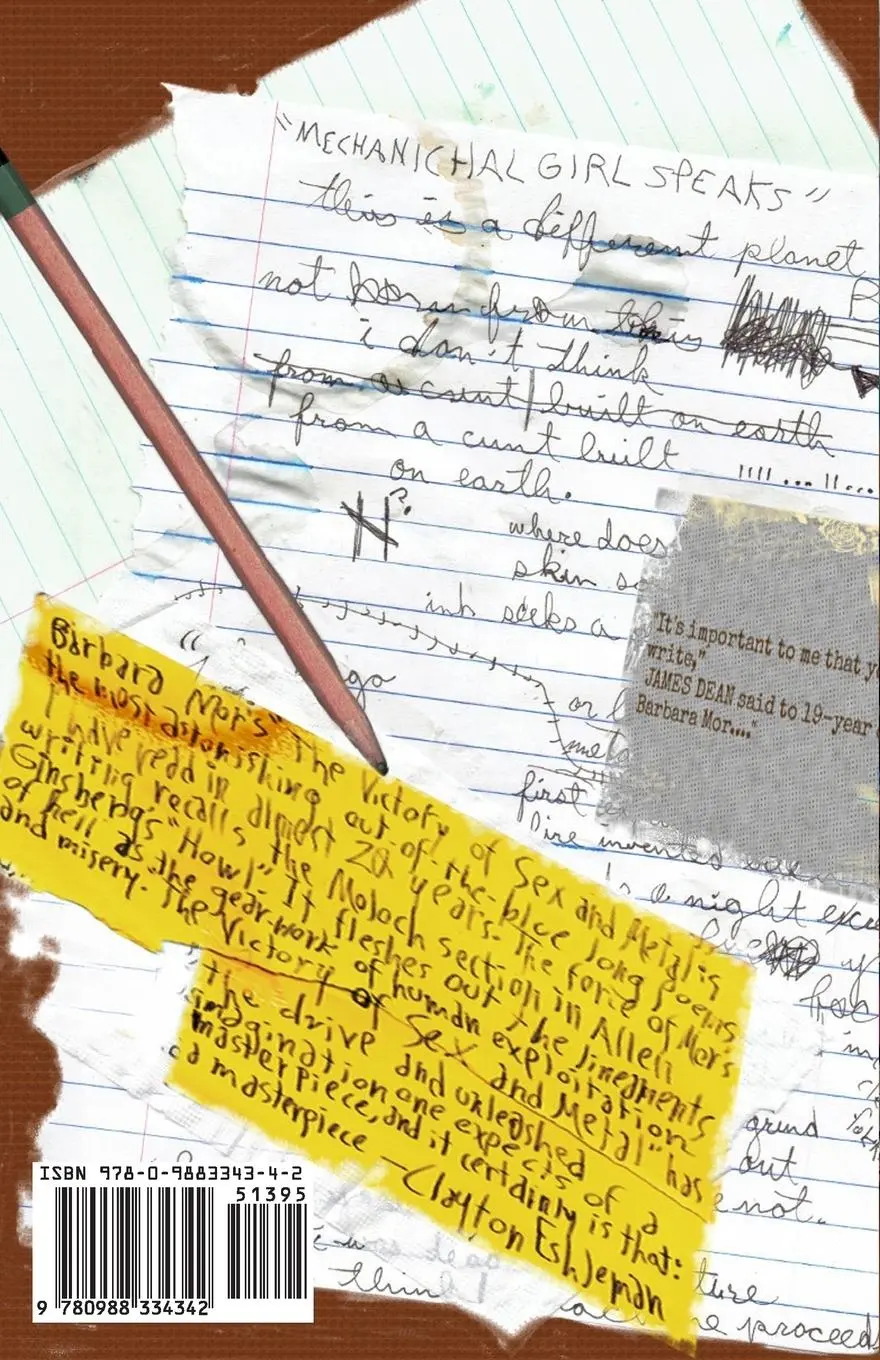 "MECHANICHAL GIRL SPEAKS"
this is a different planet
not born from this
i don't think
from a cunt built on earth
from a cunt built
on earth.
N?
where does
skin
ink seeks a
go
or
first
fire invented
is a night
grind
out
not.
think
proceed
"It's important to me that
write,"
JAMES DEAN said to 19-year
Barbara Mor...."
Barbara Mor's "The Victory of Sex and Metal" is
the most astonishing out-of-the-blue long poems
I have read in almost 20 years. The force of Mor's
writing recalls the Moloch section in Allen
Ginsberg's "Howl." It fleshes out the lineaments
of hell as the gear-work of human exploitation
and misery. "The Victory of Sex and Metal" has
the drive and unleashed
imagination one expects of a
masterpiece, and it certainly is that:
a masterpiece —Clayton Eshleman
ISBN 978-0-9883343-4-2
51395
9 780988 334342